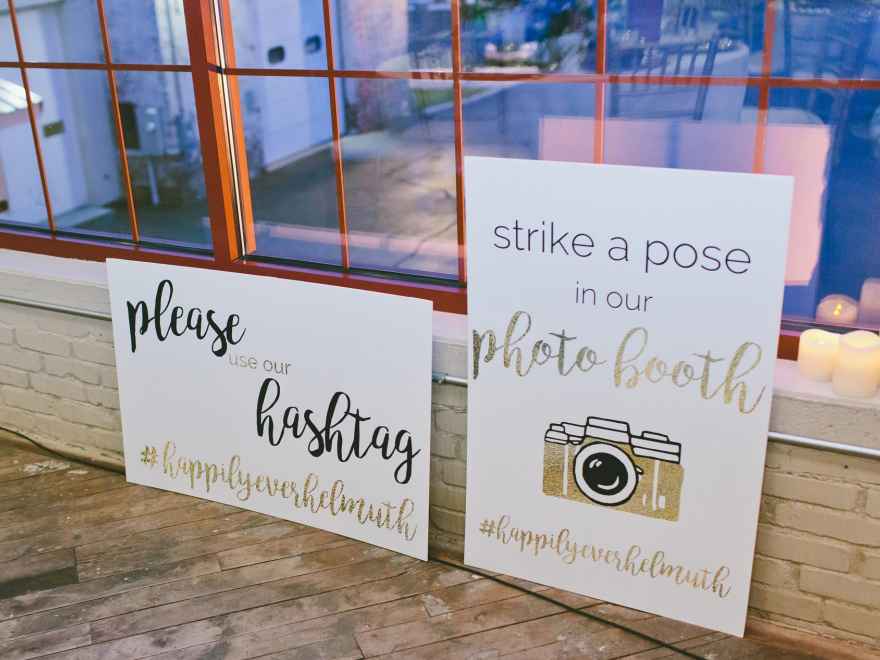 please
use our
hashtag
#happilyeverhelmuth
strike a pose
in our
photo booth
#happilyeverhelmuth